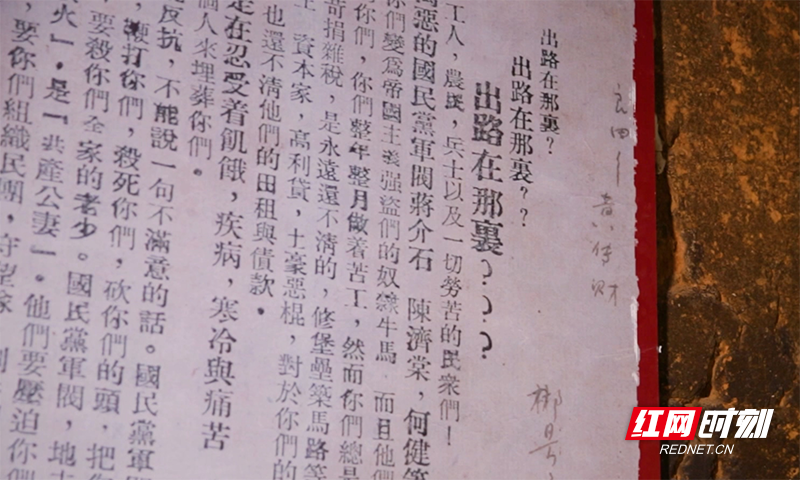 出路在那裏?
出路在那裏??
出路在那裏???
工人,農民,兵士以及一切勞苦的民衆們!
惡的國民黨軍閥蔣介石 陳濟棠,何健等
你們變爲帝國主義强盜們的奴隸牛馬 而且他們
你們,你們整年整月做着苦工,然而你們總是
苛捐雜稅,是永遠還不清的,修堡壘築馬路等
資本家,高利貸,土豪惡棍,對於你們的
也還不清他們的田租與債款.
是在忍受着飢餓,疾病,寒冷與痛苦
個人來埋葬你們.
反抗,不能說一句不滿意的話。國民黨軍
鞭打你們,殺死你們,砍你們的頭,把
要殺你們全家的老少。國民黨軍閥,地主
火」.是「共產公妻」.他們要壓迫你們
要你們組織民團,守望隊
红网时刻
REDNET.CN